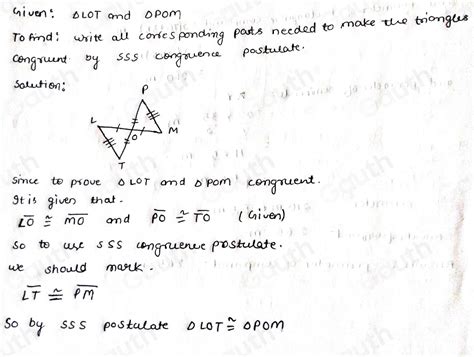 Given: △LOT and △POM
To find: write all corresponding parts needed to make the triangles
congruent by SSS congruence postulate.
Solution:
P
L
O
M
T
Since to prove △LOT and △POM congruent.
It is given that.
LO ≅ MO and PO ≅ TO (Given)
So to use SSS congruence postulate.
we should mark.
LT ≅ PM
So by SSS postulate △LOT ≅ △POM